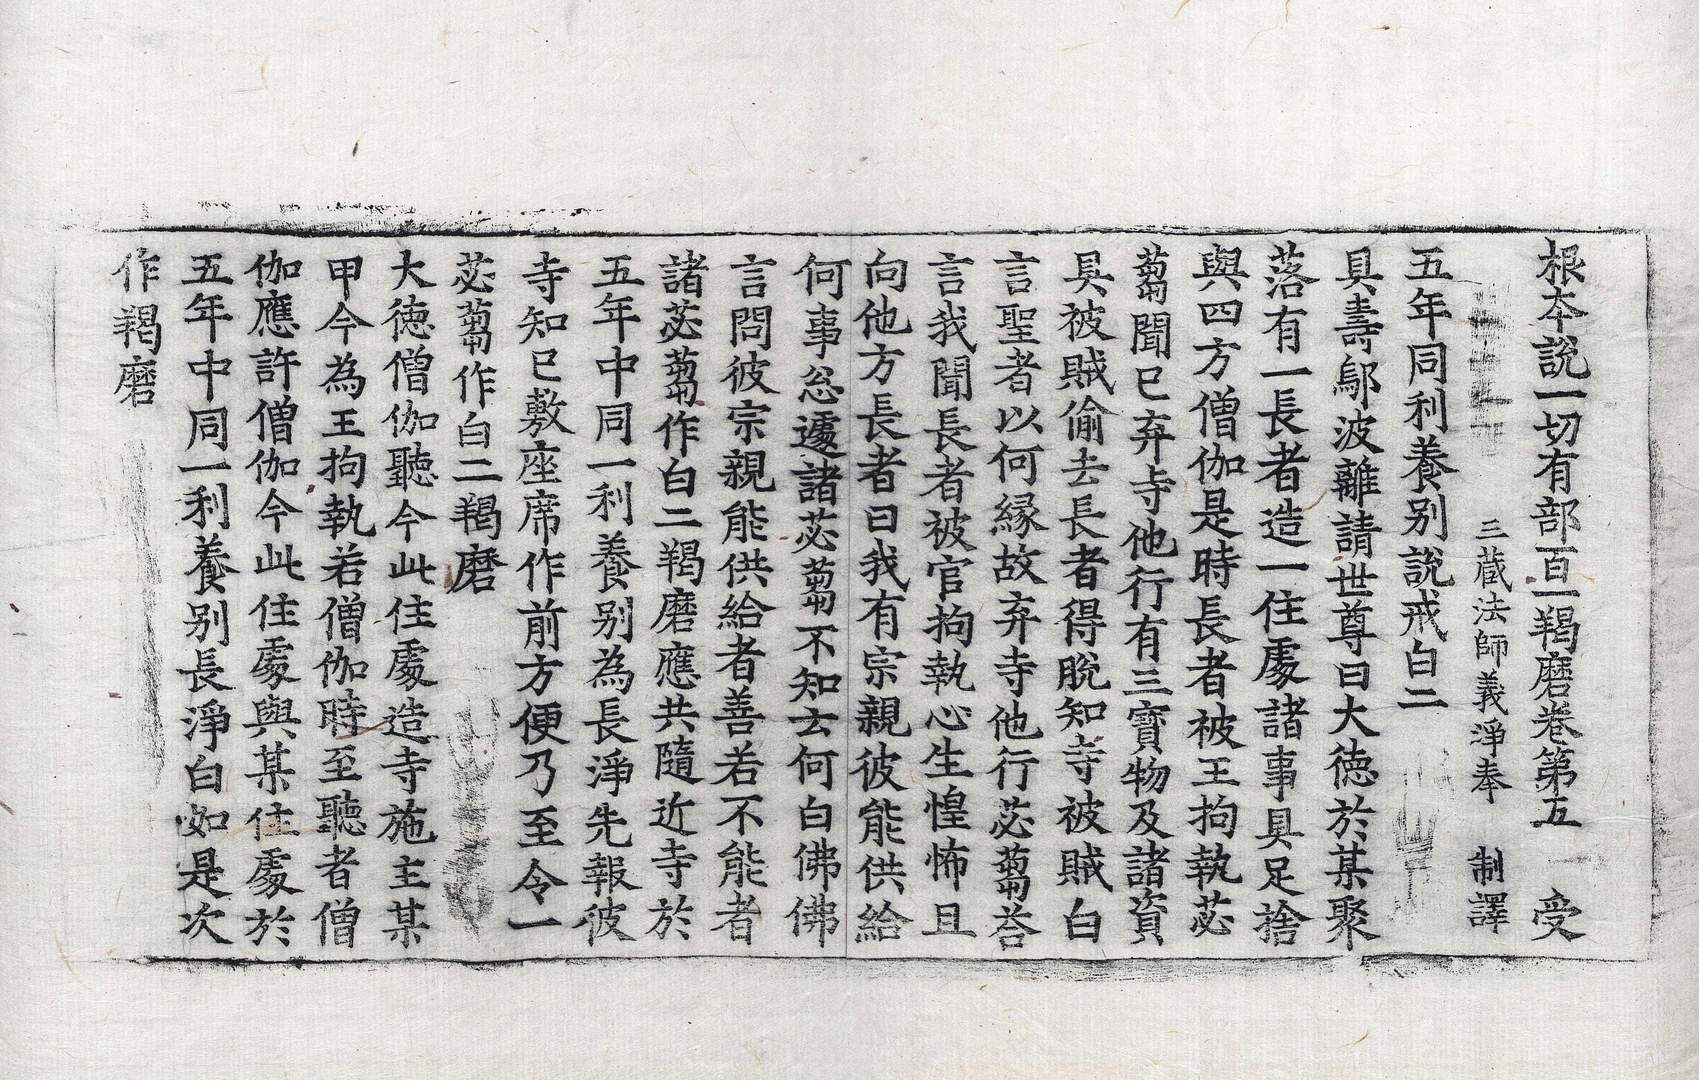 根本說一切有部百一羯磨卷第五　受
三蔵法師義淨奉　制譯
五年同利養别說戒白二
具壽鄔波離請世尊曰大德於某聚
落有一長者造一住處諸事具足捨
與四方僧伽是時長者被王拘執苾
蒭聞已弃寺他行有三寶物及諸資
具被賊偷去長者得脫知寺被賊白
言聖者以何緣故弃寺他行苾蒭荅
言我聞長者被官拘執心生惶怖且
向他方長者曰我有宗親彼能供給
何事忩遽諸苾蒭不知云何白佛佛
言問彼宗親能供給者善若不能者
諸苾蒭作白二羯磨應共隨近寺於
五年中同一利養别為長淨先報彼
寺知已敷座席作前方便乃至令一
苾蒭作白二羯磨
大德僧伽聽今此住處造寺施主某
甲今為王拘執若僧伽時至聽者僧
伽應許僧伽今此住處與某住處於
五年中同一利養别長淨白如是次
作羯磨